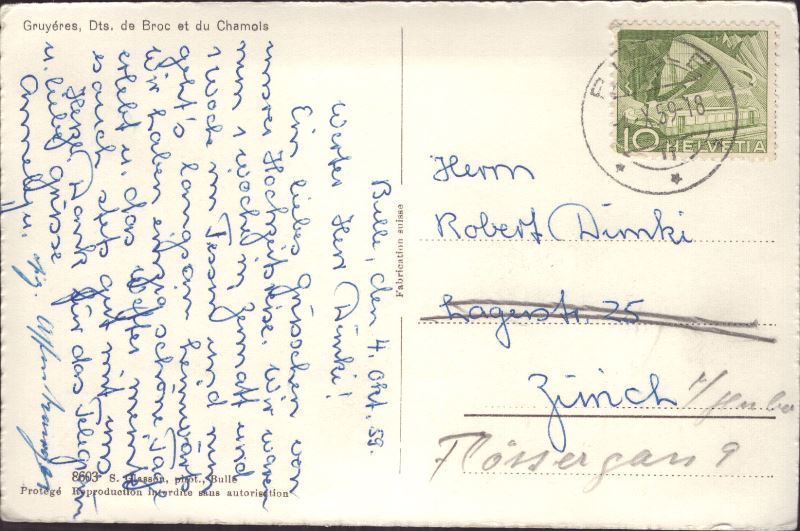 Gruyéres, Dts. de Broc et du Chamois
Bulle, den 4. Okt. 59.
Werter Herr Dimki!
Ein liebes Grüsschen von
unserer Hochzeitsreise. Wir waren
nun 1 Woche in Zermatt und
1 Woche im Tessin und nun
geht's langsam heimwärts.
Wir haben einzig schöne Tage
erlebt u. das Wetter meint
es auch stets gut mit uns.
Herzl. Dank für das Telegramm
u. liebe Grüsse
Annely u.
Fabrication suisse
8603 S. Glasson, phot., Bulle
Protégé Reproduction interdite sans autorisation
BULLE
X.59-18
10 HELVETIA
Herrn
Robert Dimki
Lagerstr. 25
Zürich
Flössergass 9